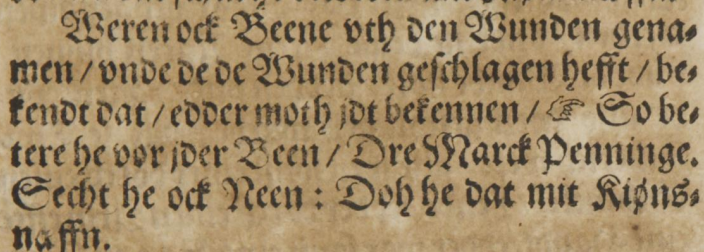 Weren ock Beene vth den Wunden gena⸗
men / vnde de de Wunden geschlagen hefft / be⸗
kendt dat / edder moth jdt bekennen / ☞ So be⸗
tere he vor jder Been / Dre Marck Penninge.
Secht he ock Neen : Doh he dat mit Kiøns⸗
naffn.